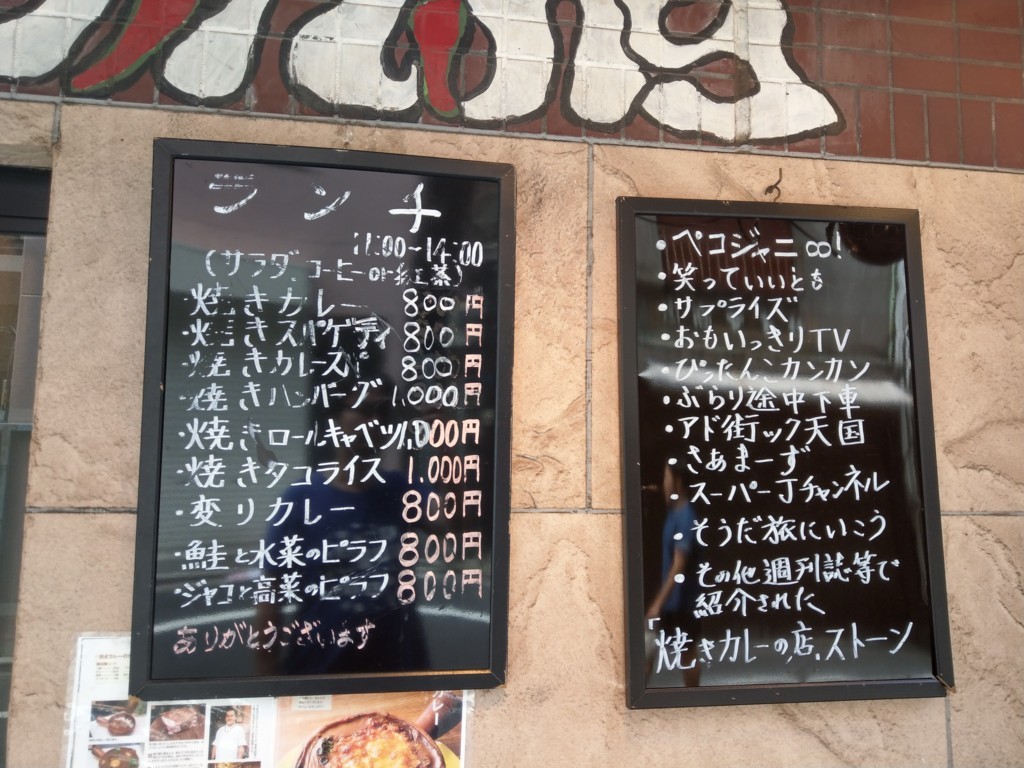 ランチ
11:00~14:00
(サラダ コーヒーor紅茶)
・焼きカレー 800円
・焼きスパゲティ 800円
・焼きカレースパ 800円
・焼きハンバーグ 1,000円
・焼きロールキャベツ 1,000円
・焼きタコライス 1.000円
・変りカレー 800円
・鮭と水菜のピラフ 800円
・ジャコと高菜のピラフ 800円
ありがとうございます
・ペコジャニ∞!
・笑っていいとも
・サプライズ
・おもいっきりTV
・ぴったんこカンカン
・ぶらり途中下車
・アド街ック天国
・さぁまーず
・スーパーJチャンネル
・そうだ旅にいこう
・その他週刊誌等で
紹介された
「焼きカレーの店.ストーン